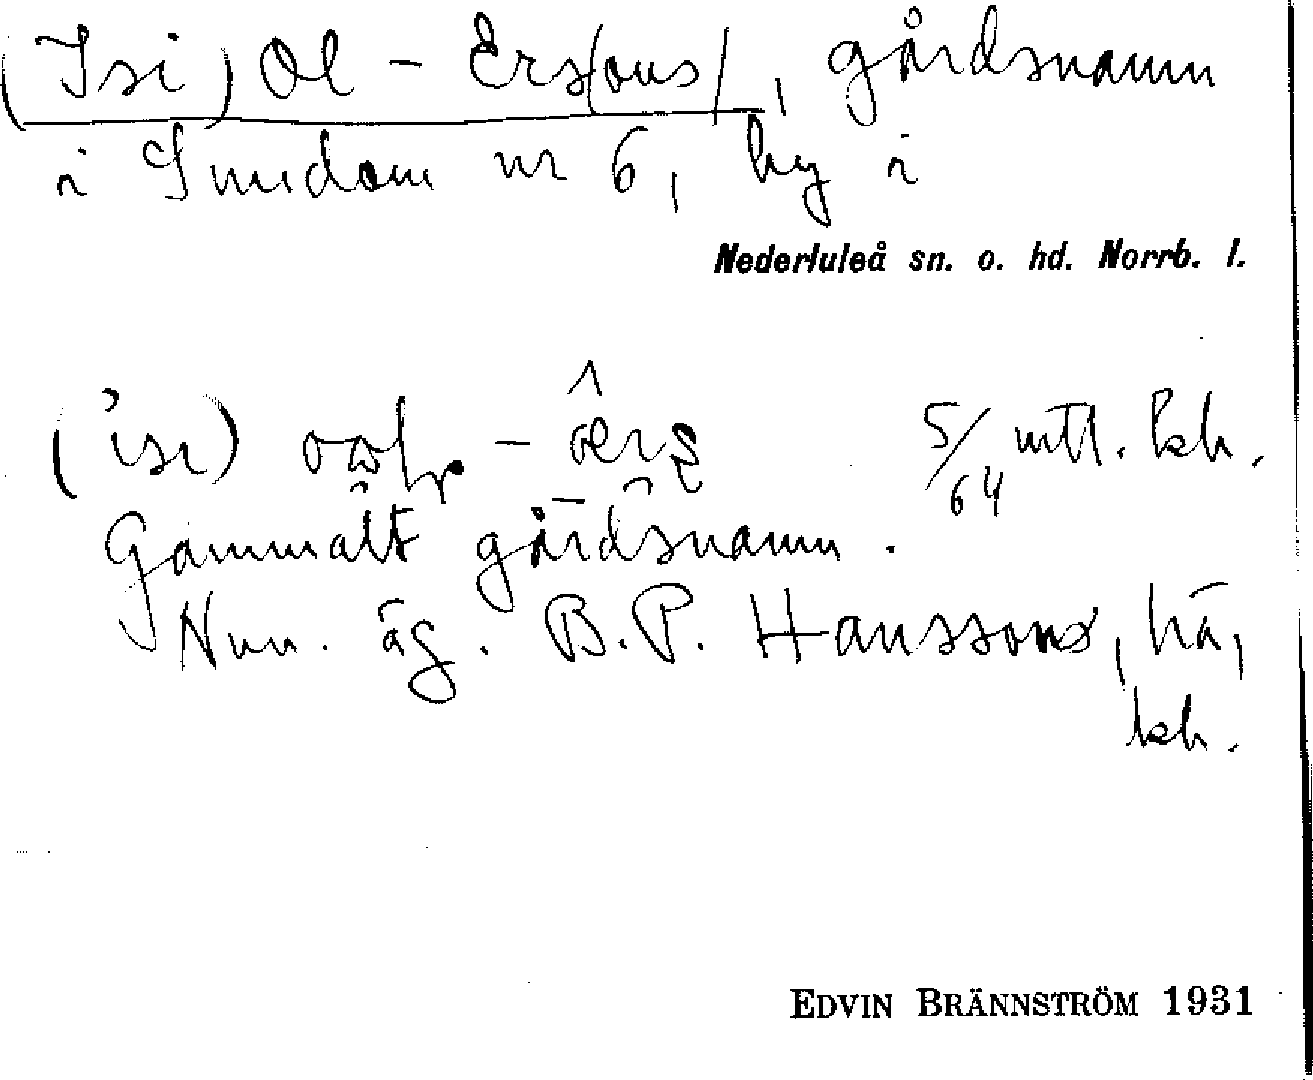 (Isi) Ol-Ers/ons/, gårdsnamn
i Smedom nr 6, by i
Nederluleå sn. o. hd. Norrb. l.
5/64 mtl. kh.
Gammalt gårdsnamn.
Nuv. äg. B.P. Hanssons, hä,
kh.
EDVIN BRÄNNSTRÖM 1931